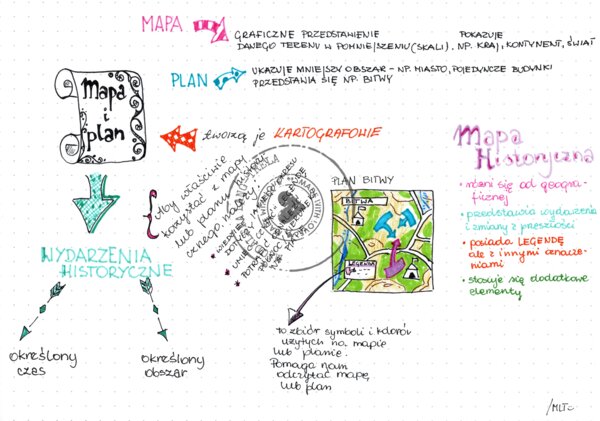 MAPA
GRAFICZNE PRZEDSTAWIENIE POKAZUJE
DANEGO TERENU W POMNIEJSZENIU (SKALI). NP. KRAJ, KONTYNENT, ŚWIAT
PLAN
UKAZUJE MNIEJSZY OBSZAR - NP. MIASTO, POJEDYNCZE BUDYNKI
PRZEDSTAWIA SIĘ NP. BITWY
Mapa
i
plan
tworzą je KARTOGRAFOWIE
Aby właściwie
korzystać z mapy
lub planu
historycznego należy:
WYDARZENIA
HISTORYCZNE
określony
czas
określony
obszar
PLAN BITWY
BITWA
LEGENDA
to zbiór symboli i kolorów
użytych na mapie
lub planie.
Pomaga nam
odczytać mapę
lub plan
Mapa
Historyczna
• różni się od geogra-
ficznej
• przedstawia wydarzenia
i zmiany z przeszłości
• posiada LEGENDĘ
ale z innymi oznacze-
niami
• stosuje się dodatkowe
elementy
/MLT